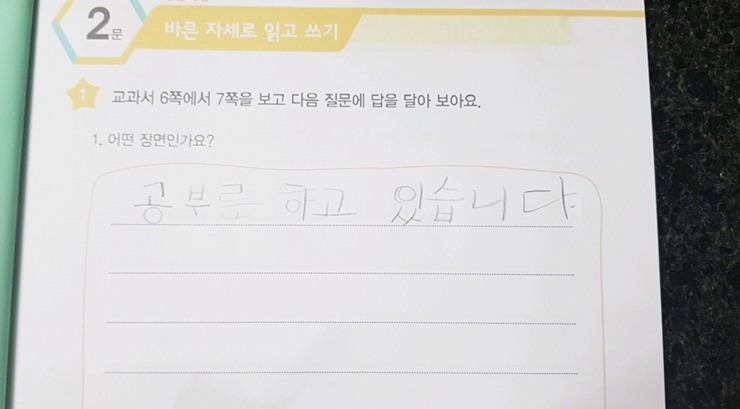 2문 바른 자세로 읽고 쓰기
1 교과서 6쪽에서 7쪽을 보고 다음 질문에 답을 달아 보아요.
1. 어떤 장면인가요?
공부를 하고 있습니다.